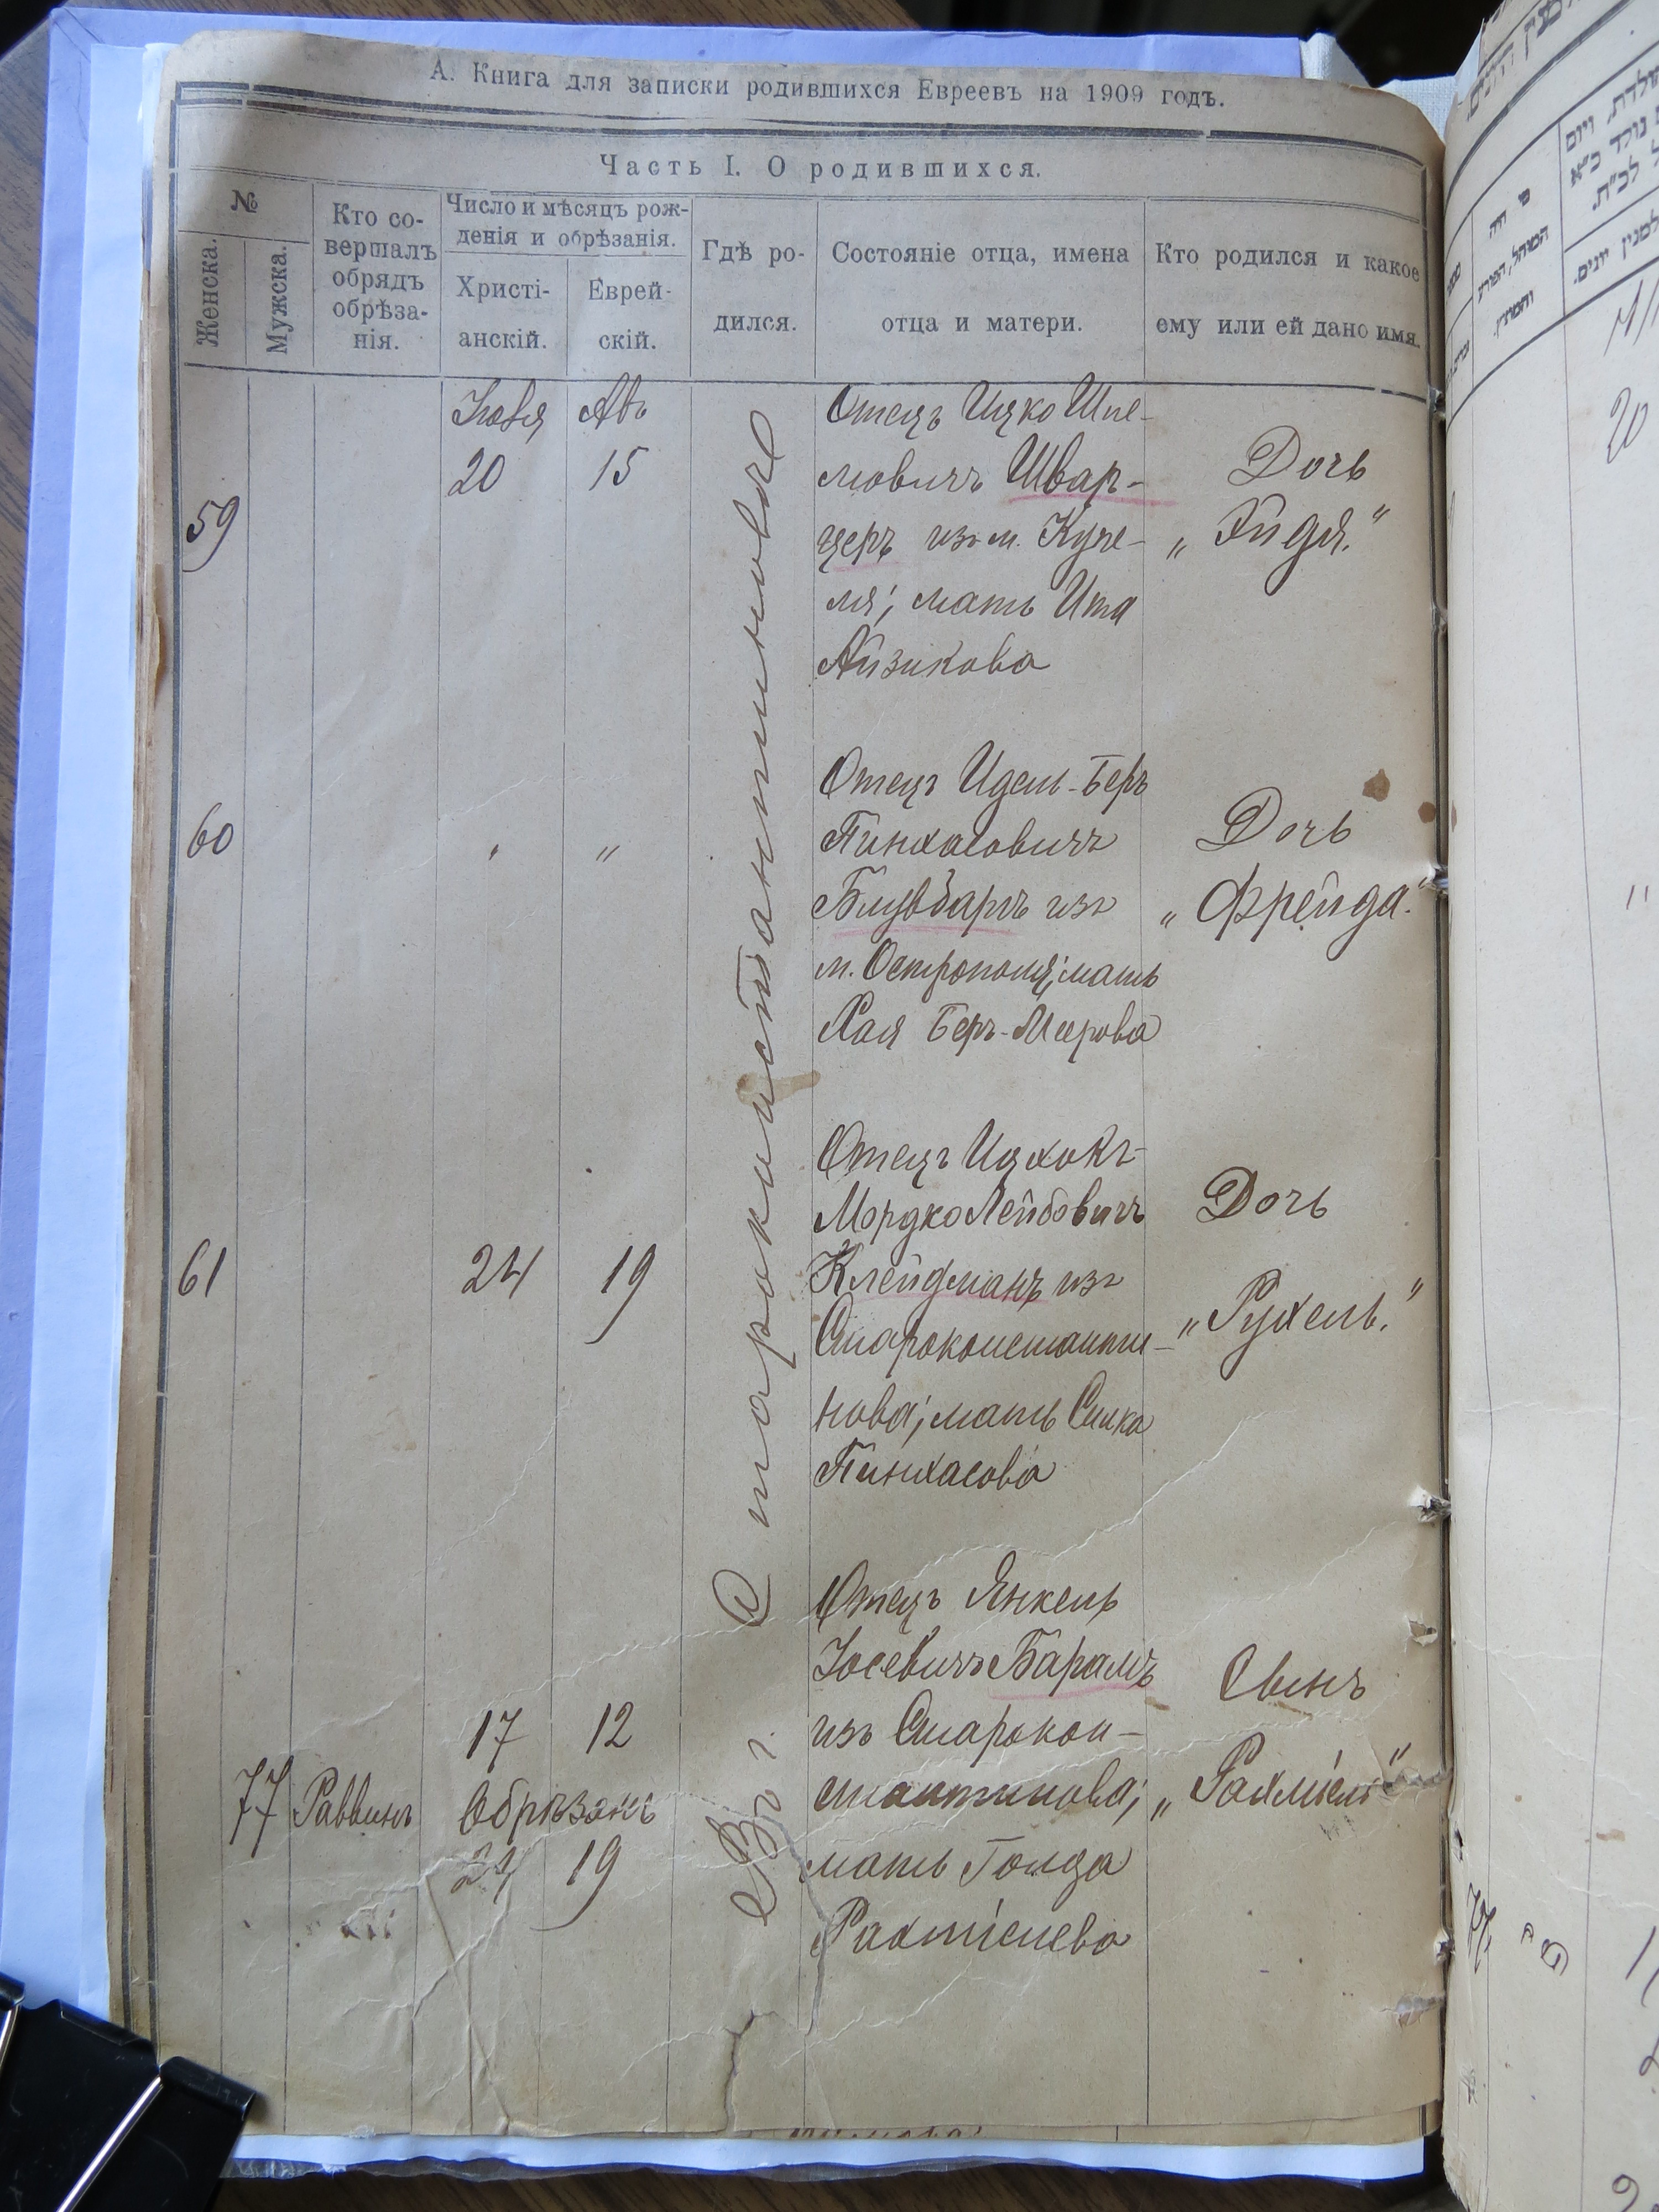 А. Книга для записки родившихся Евреевъ на 1909 годъ.
Часть I. О родившихся.
№
Женска.
Мужска.
Кто со-
вершалъ
обрядъ
обрѣза-
нія.
Число и мѣсяцъ рож-
денія и обрѣзанія.
Христі-
анскій.
Еврей-
скій.
Гдѣ ро-
дился.
Состояніе отца, имена
отца и матери.
Кто родился и какое
ему или ей дано имя.
Въ г. Старокистантиновѣ
59
Іюля Авъ
20 15
Отецъ Ицко Шле-
мовичъ Швар-
церъ изъ м. Куле-
ля; мать Ита
Айзикова
Дочь
„Эйдя."
60
" "
Отецъ Идель-Беръ
Пинхасовичъ
из
м. Острополя; мать
Хая Беръ-Меерова
Дочь
„Фрейда."
61
24 19
Отецъ Ицхокъ-
Мордко Лейбовичъ
Клейдманъ изъ
Староконстанти-
нова; мать Симка
Пинхасова
Дочь
„Рухель."
77
Раввинъ
17 12
Обрѣзанъ
24 19
Отецъ Янкель
Іосевичъ Барамъ
изъ Старокон-
стантинова;
мать Голда
Рахміелева
Сынъ
„Рахміель"